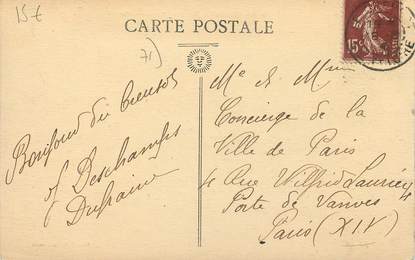 15€
CARTE POSTALE
71)
15c
Bonjour du Creusot
Deschamps
Mr & Mme
Concierge de la
Ville de Paris
4 Rue Wilfrid Laurier 4
Porte de Vanves
Paris (XIV)